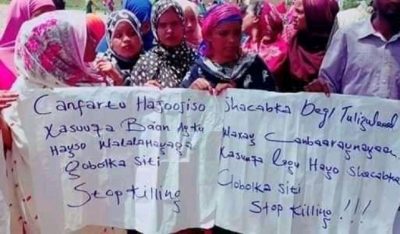 Canfartu Hajoojiso
Xasuuqa Baan Agtu
Hayso Walalahayaga
gobolka Siti
Stop Killing
Shacabka Degl Tuliguleed
Waxay Canbaaraynayaan
Xasuuqa lagu Hayo Shacabka
Gobolka Siti
Stop Killing!!!